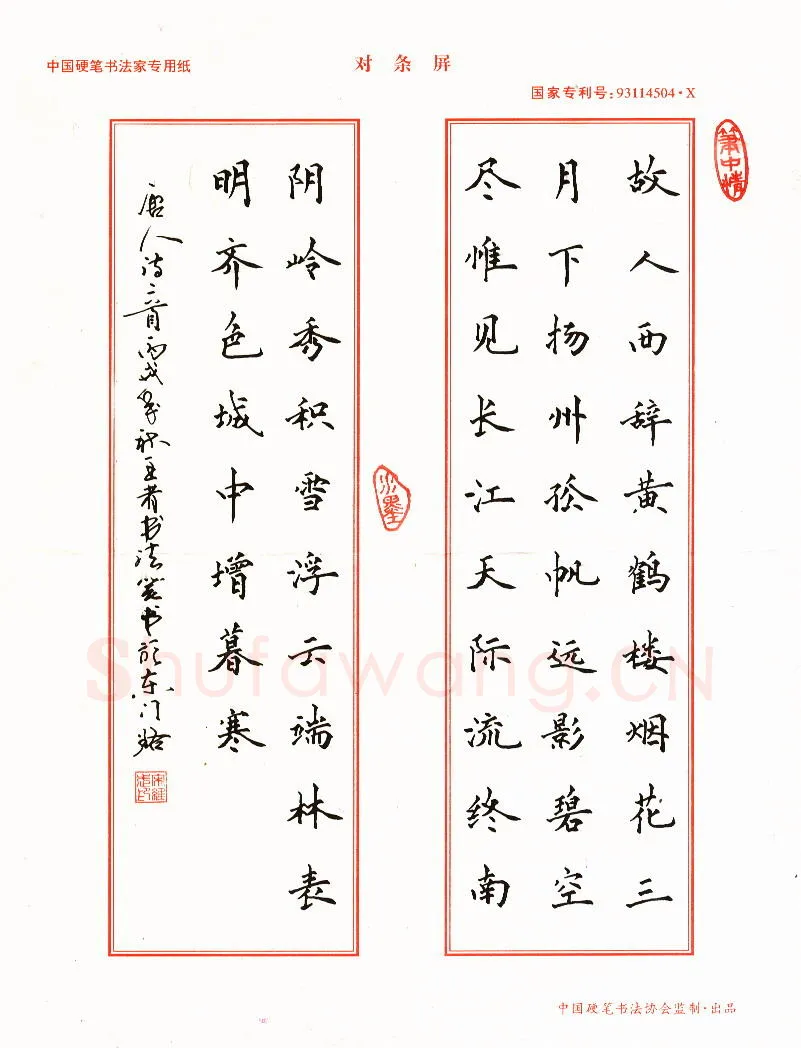 中国硬笔书法家专用纸
对条屏
国家专利号:93114504·X
筆中情
故人西辞黄鹤楼烟花三
月下扬州孤帆远影碧空
尽惟见长江天际流终南
水墨
阴岭秀积雪浮云端林表
明齐色城中增暮寒
唐人诗二首丙戌 王者书法 书
Shufawang.CN
中国硬笔书法协会监制·出品